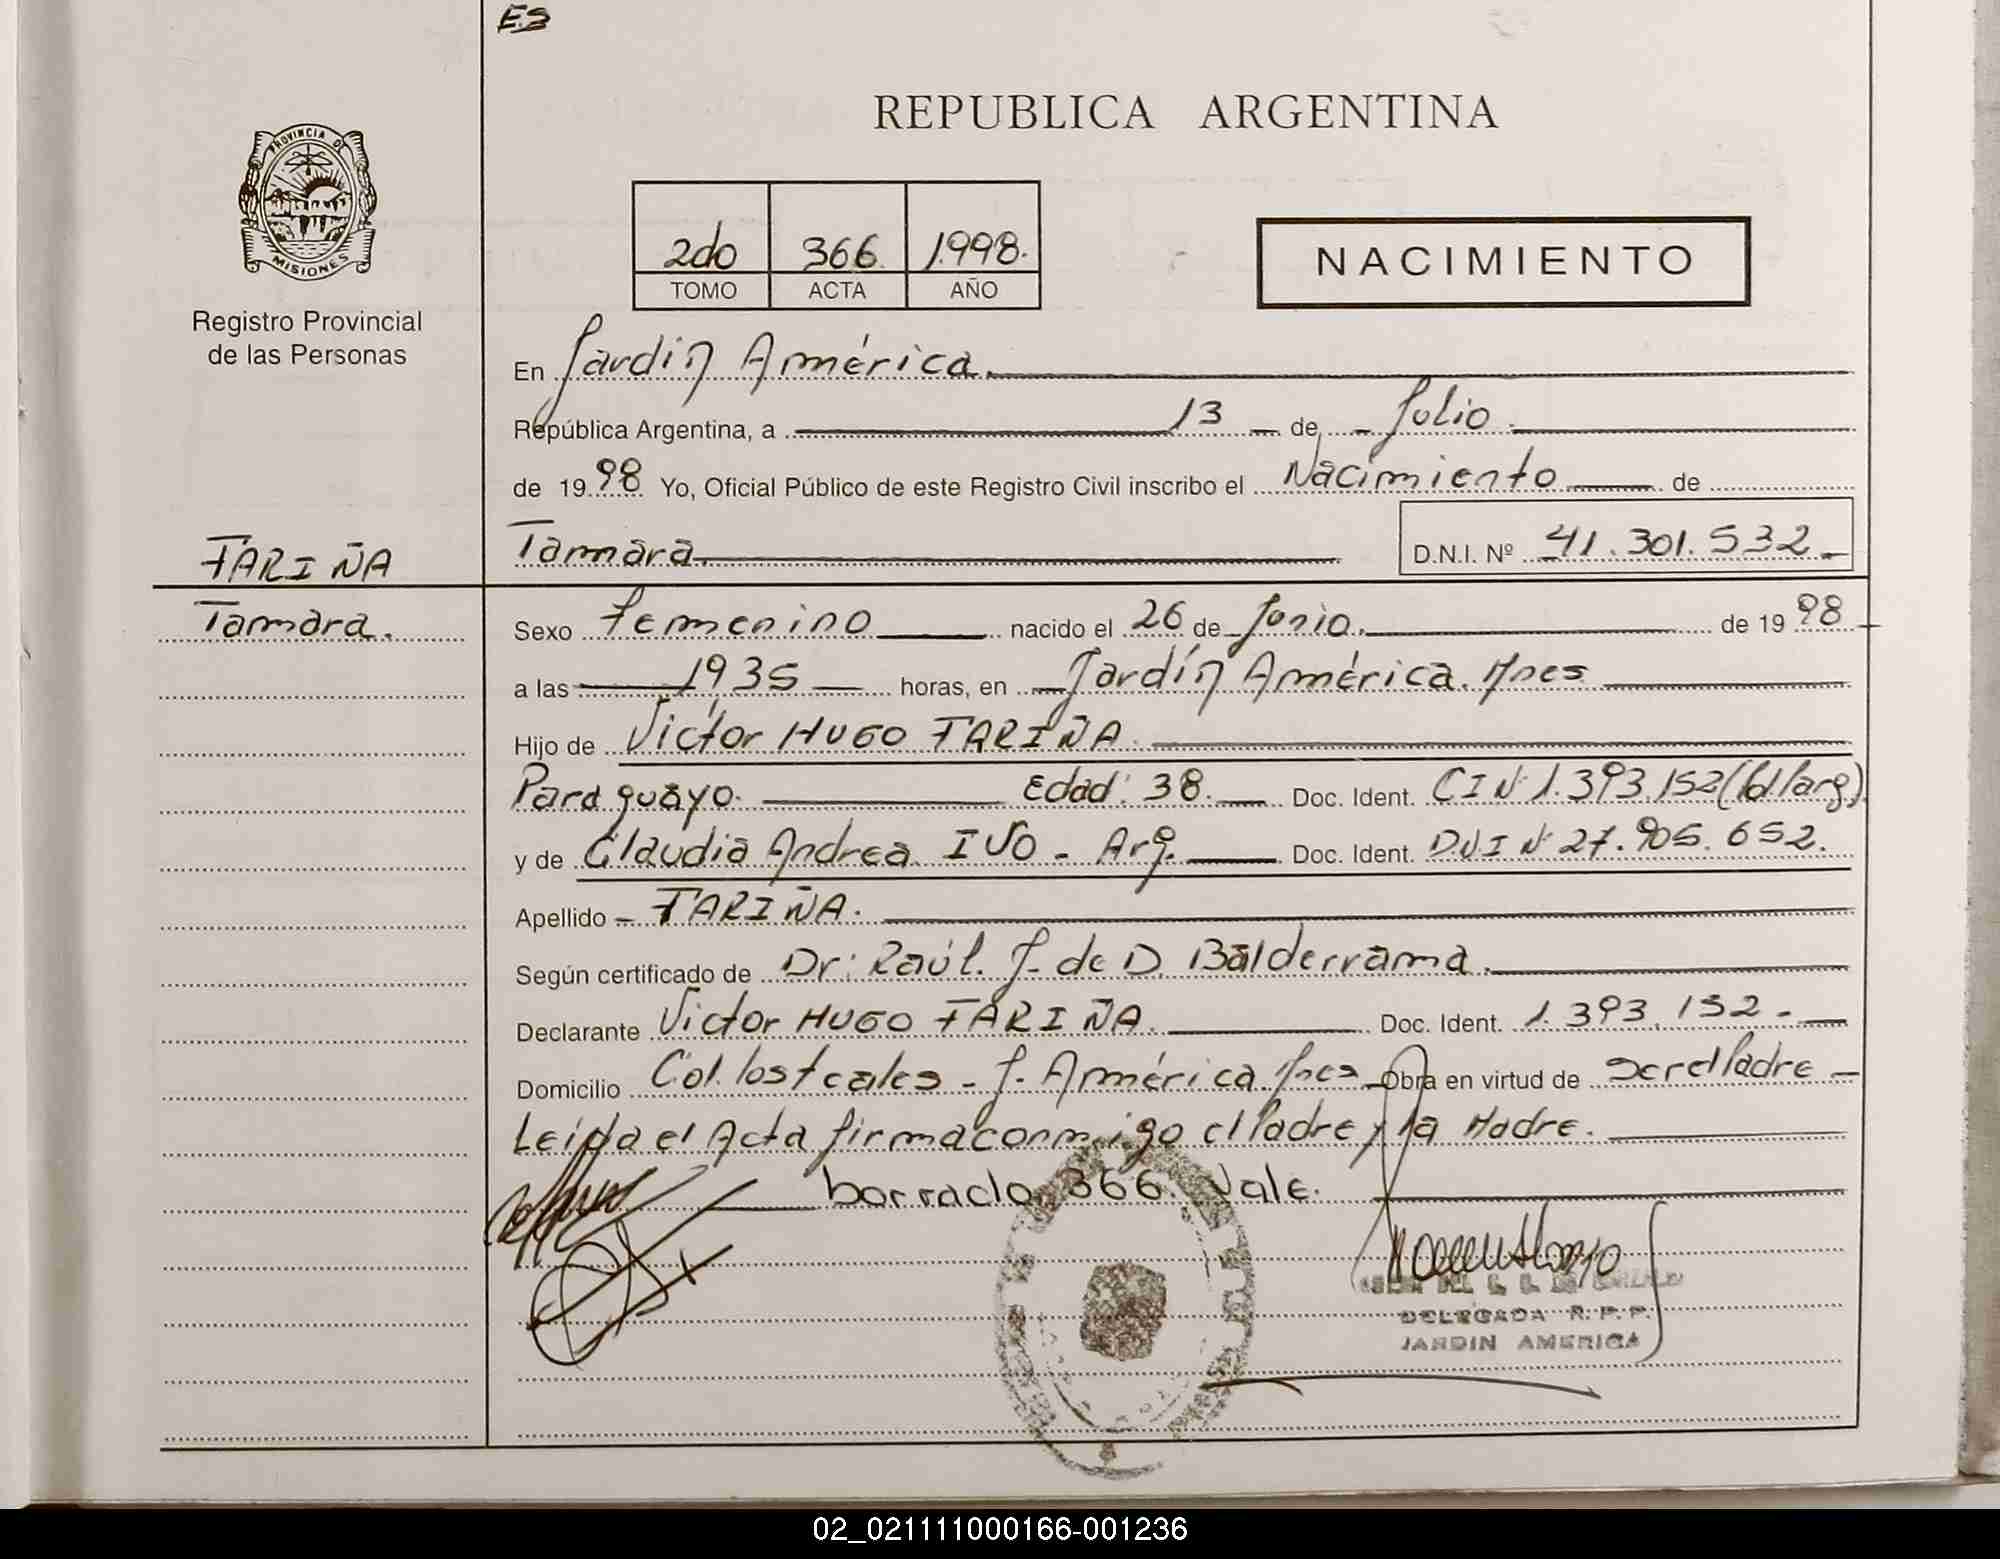 ES
REPUBLICA ARGENTINA
PROVINCIA DE
MISIONES
Registro Provincial
de las Personas
2do 366. 1.998.
TOMO ACTA AÑO
NACIMIENTO
En Jardín América.
República Argentina, a 13 de Julio
de 1998 Yo, Oficial Público de este Registro Civil inscribo el Nacimiento de
FARIÑA
Tamara D.N.I. Nº 41.301.532
Tamara.
Sexo Femenino nacido el 26 de Junio. de 1998
a las 1935 horas, en Jardín América. Mnes
Hijo de Victor HUGO FARIÑA.
Paraguayo. Edad: 38. Doc. Ident. CI Nº 1.393.152
y de Claudia Andrea IVO - Arg. Doc. Ident. DNI Nº 27.905.652.
Apellido - FARIÑA.
Según certificado de Dr: Raúl. J. de D. Balderrama.
Declarante Victor HUGO FARIÑA. Doc. Ident. 1.393.152.
Domicilio Col. los teales - J. América Mnes Obra en virtud de ser el Padre
Leída el Acta firma conmigo el Padre y la Madre.
borrado 366. Vale.
DELEGADA R.P.P.
JARDIN AMERICA
02_021111000166-001236